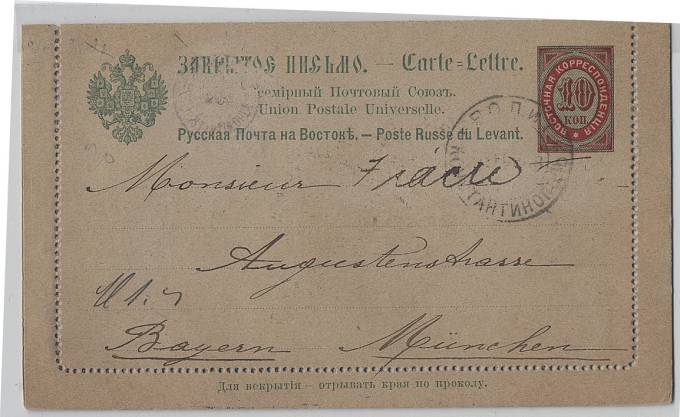 ЗАКРЫТОЕ ПИСЬМО. — Carte=Lettre.
Всемірный Почтовый Союзъ.
Union Postale Universelle.
Русская Почта на Востокѣ. — Poste Russe du Levant.
ВОСТОЧНАЯ КОРРЕСПОНДЕНЦІЯ
10
КОП.
Monsieur
Augustenstrasse
Bayern München
Для вскрытія – отрывать края по проколу.